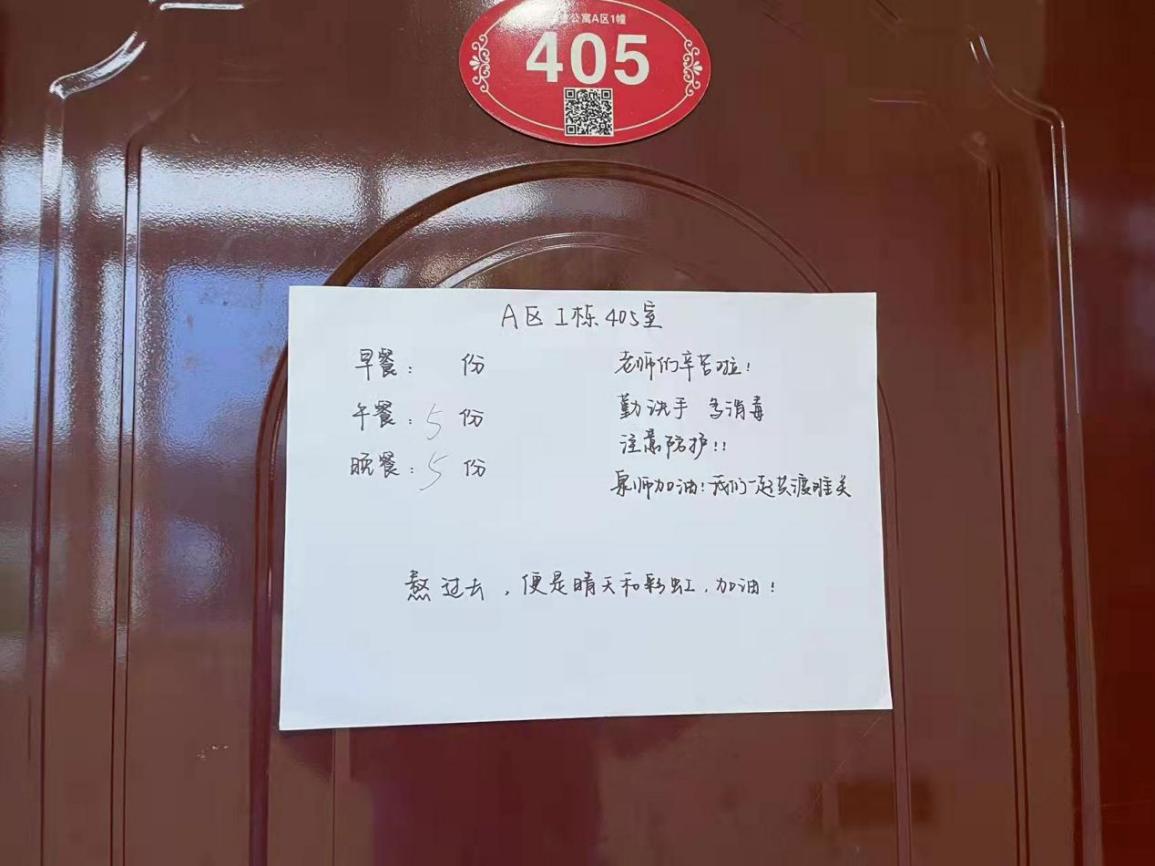 公寓A区1幢
405
A区1栋405室
早餐： 份
午餐：5份
晚餐：5份
老师们辛苦啦！
勤洗手 多消毒
注意防护！！
泉师加油！我们一起共渡难关
熬过去，便是晴天和彩虹，加油！